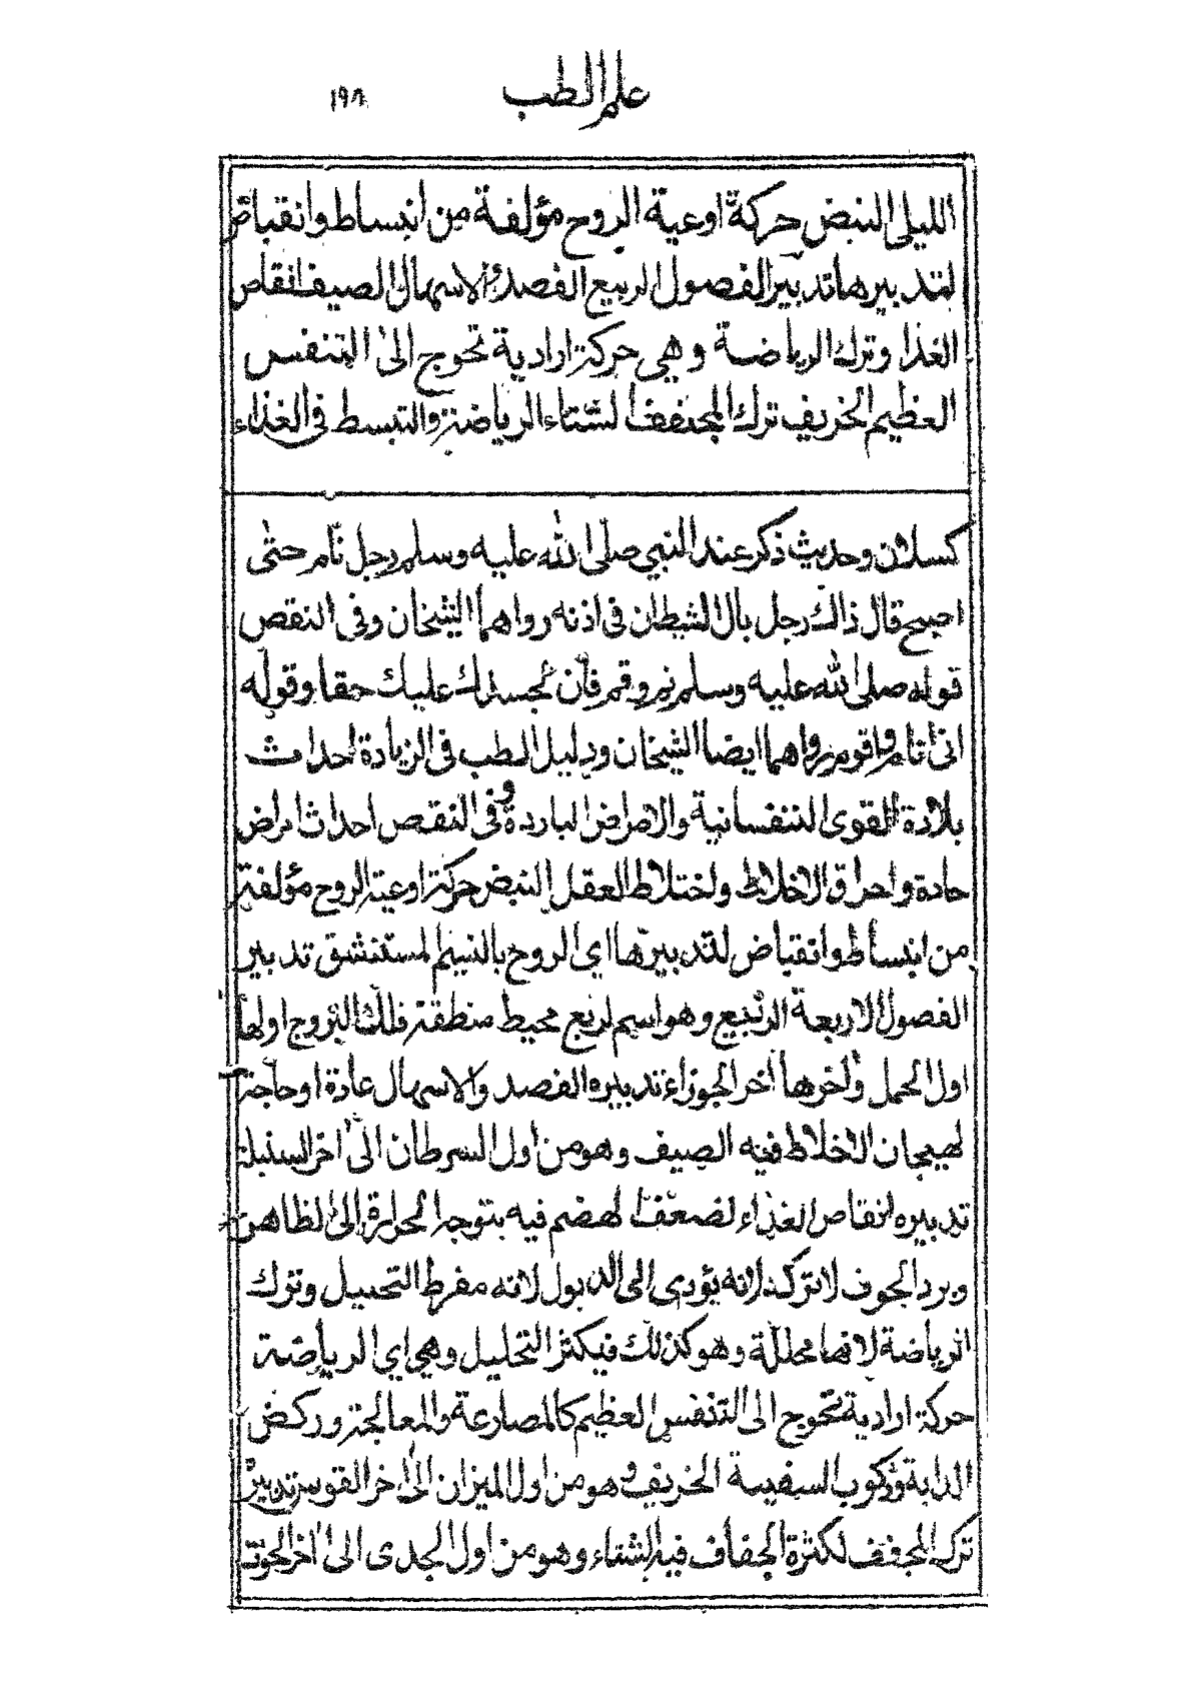 علم الطب ١٩٨
الليلى النبض حركة اوعية الروح مؤلفة من انبساط وانقباض
لتدبيرها تدبير الفصول الربيع الفصد والاسهال الصيف انقاص
الغذا وترك الرياضة وهي حركة ارادية تحوج الى التنفس
العظيم الخريف ترك المجفف الشتاء الرياضة والتبسط في الغذاء
كسلان وحديث ذكر عند النبي صلى الله عليه وسلم رجل نام حتى
اصبح قال ذاك رجل بال الشيطان في اذنه رواهما الشيخان وفي النقص
قوله صلى الله عليه وسلم نم وقم فان لجسدك عليك حقا وقوله
انى انام واقوم رواهما ايضا الشيخان ودليل الطب في الزيادة احداث
بلادة القوى النفسانية والامراض الباردة وفي النقص احداث امراض
حادة واحراق الاخلاط واختلاط العقل النبض حركة اوعية الروح مؤلفة
من انبساط وانقباض لتدبيرها اى الروح بالنسيم المستنشق تدبير
الفصول الاربعة الربيع وهو اسم لربع محيط منطقة فلك البروج اولها
اول الحمل وآخرها آخر الجوزاء تدبيره الفصد والاسهال عادة او حاجة
لهيجان الاخلاط فيه الصيف وهو من اول السرطان الى آخر السنبلة
تدبيره انقاص الغذاء لضعف الهضم فيه بتوجه الحرارة الى الظاهر
وبرد الجوف لا تركه لانه يؤدى الى الذبول لانه مفرط التحليل وترك
الرياضة لانها محللة وهو كذلك فيكثر التحليل وهي اي الرياضة
حركة ارادية تحوج الى التنفس العظيم كالمصارعة والمعالجة وركض
الدابة وركوب السفينة الخريف وهو من اول الميزان الى آخر القوس تدبيره
ترك المجفف لكثرة الجفاف فيه الشتاء وهو من اول الجدى الى آخر الحوت